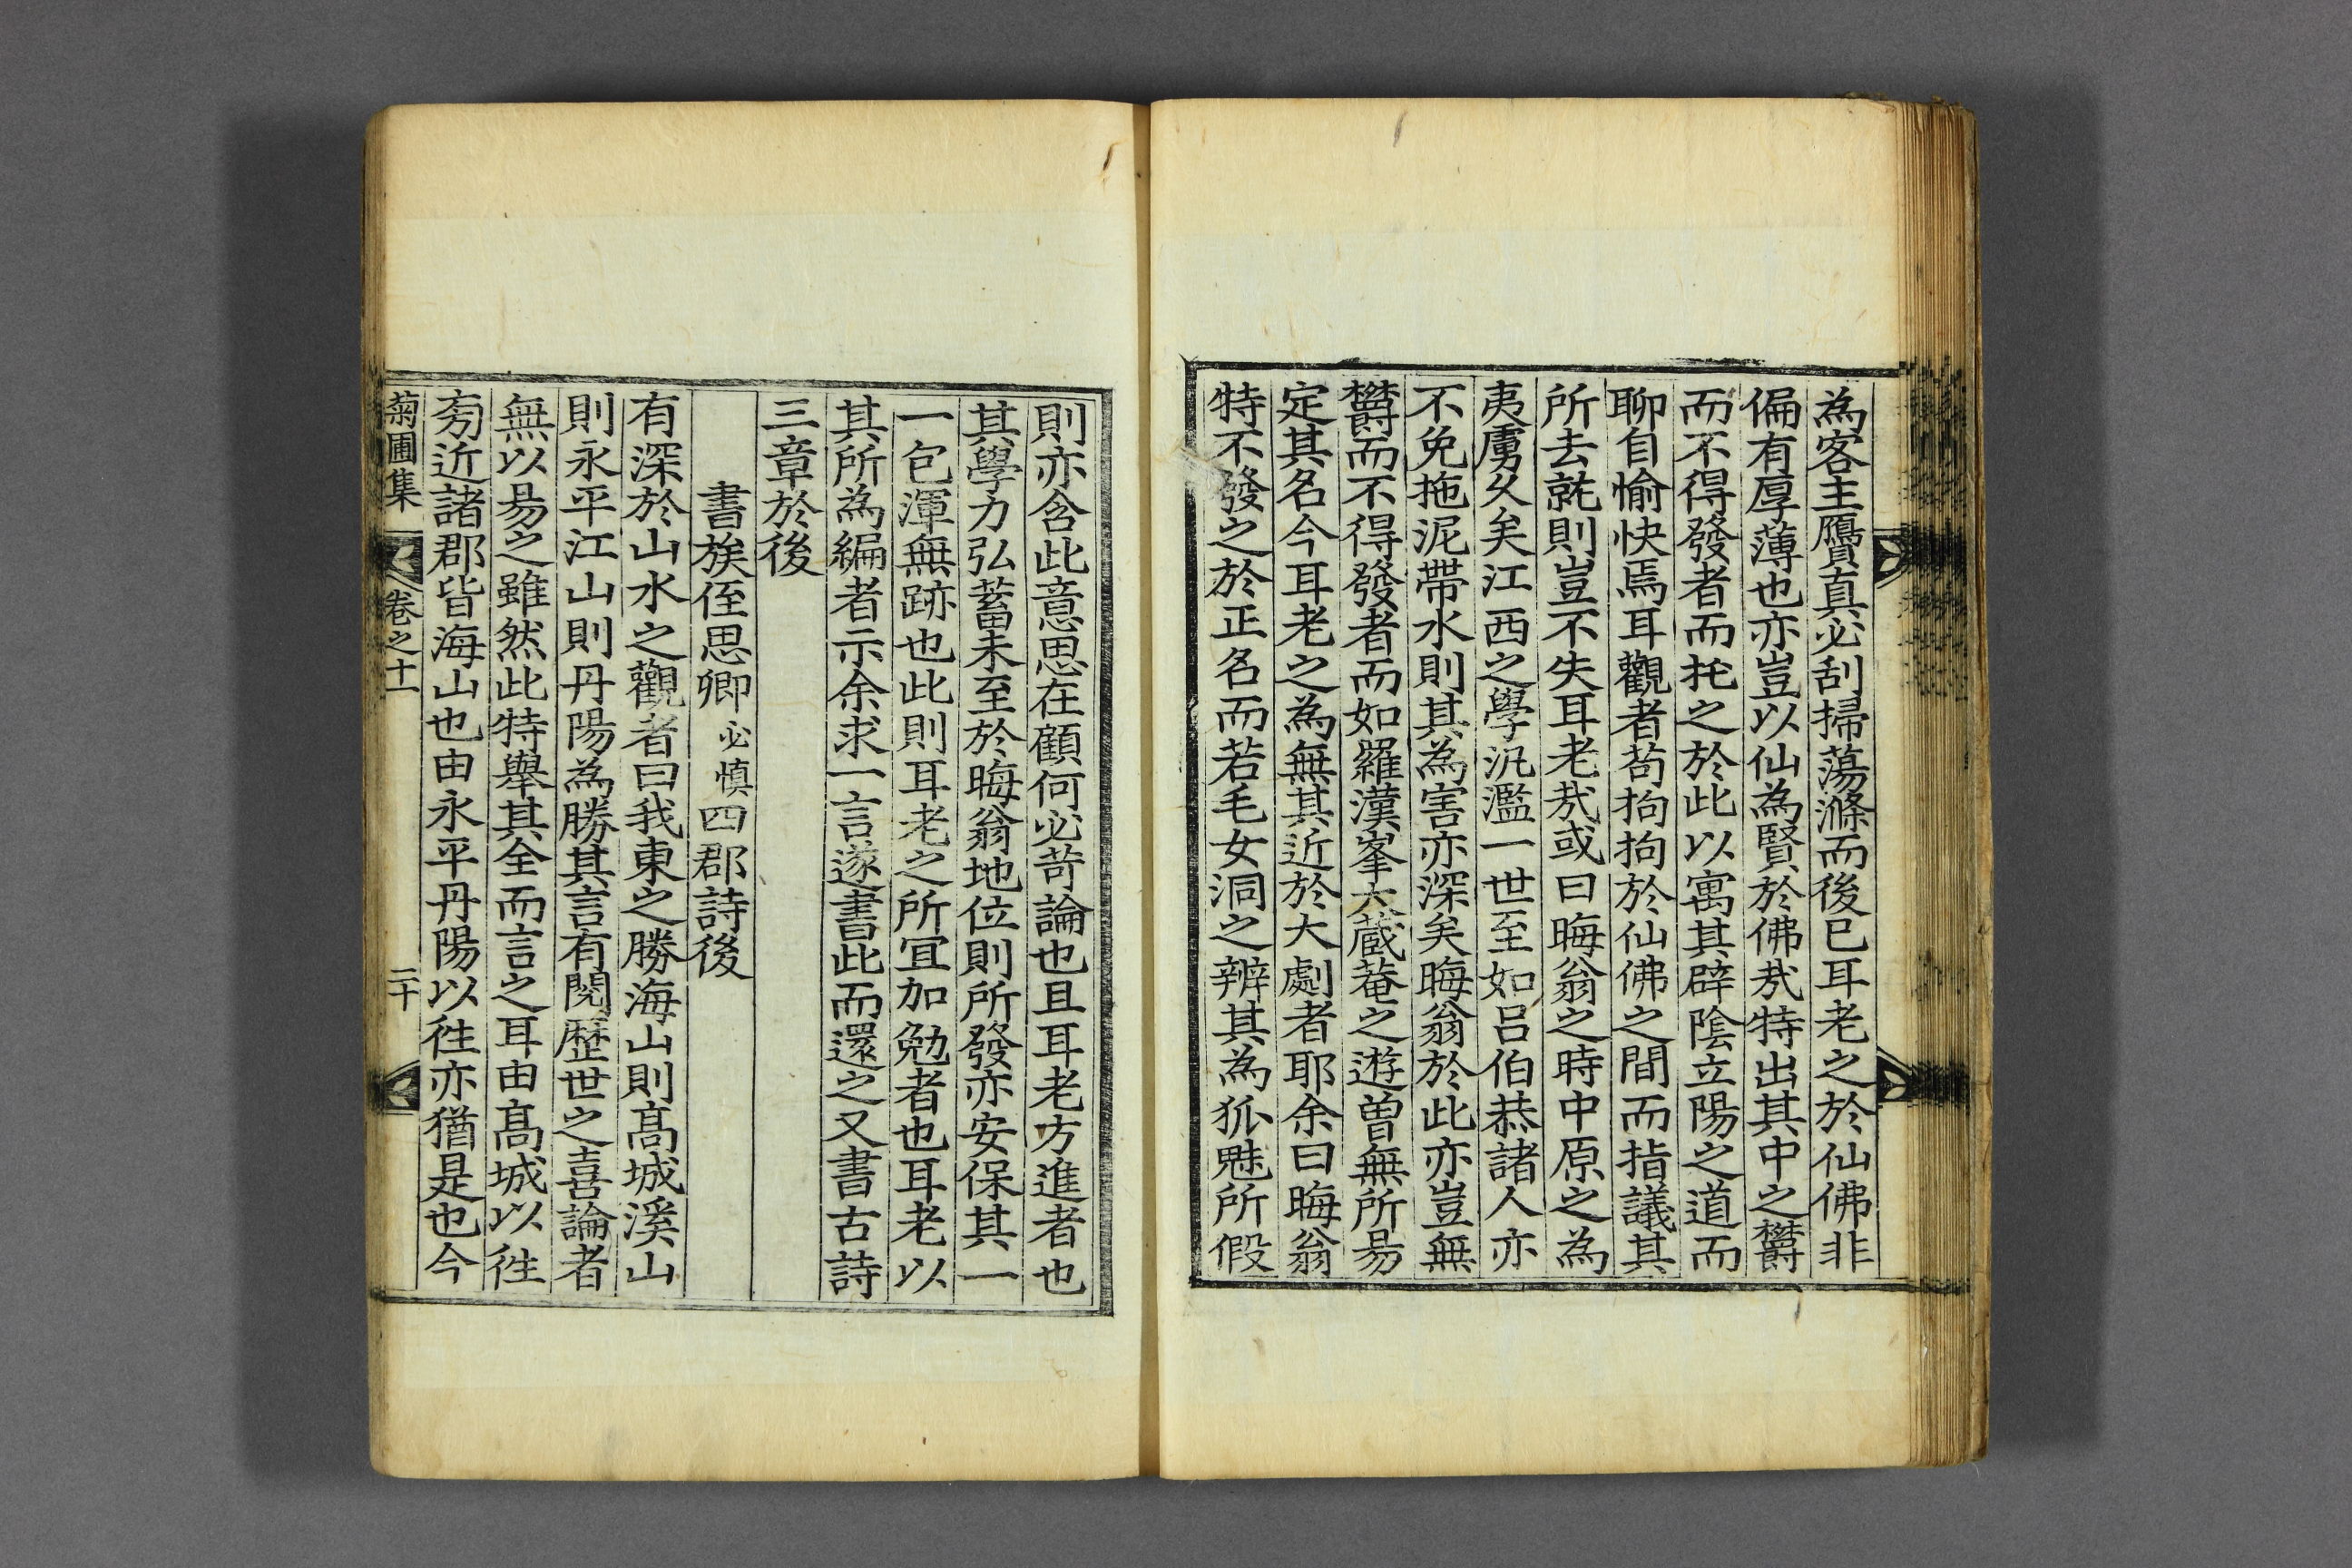 為客主贗真必刮掃蕩滌而後已耳老之於仙佛非
偏有厚薄也亦豈以仙為賢於佛㢤特出其中之欝
而不得發者而托之於此以寓其辟陰立陽之道而
聊自愉快焉耳觀者苟拘拘於仙佛之間而指議其
所去就則豈不失耳老㢤或曰晦翁之時中原之為
夷虜久矣江西之學汎濫一世至如呂伯恭諸人亦
不免拖泥帶水則其為害亦深矣晦翁於此亦豈無
欝而不得發者而如羅漢峯六蔵菴之遊曽無所易
定其名今耳老之為無其近於大劇者耶余曰晦翁
特不發之於正名而若毛女洞之辨其為狐魅所假
則亦含此意思在顧何必苛論也且耳老方進者也
其學力弘蓄未至於晦翁地位則所發亦安保其一
一包渾無跡也此則耳老之所宜加勉者也耳老以
其所為編者示余求一言遂書此而還之又書古詩
三章於後
書族侄思卿必慎四郡詩後
有深於山水之觀者曰我東之勝海山則髙城溪山
則永平江山則丹陽為勝其言有閱歷世之喜論者
無以易之雖然此特舉其全而言之耳由髙城以徃
旁近諸郡皆海山也由永平丹陽以徃亦猶是也今
菊圃集 卷之十一 二十